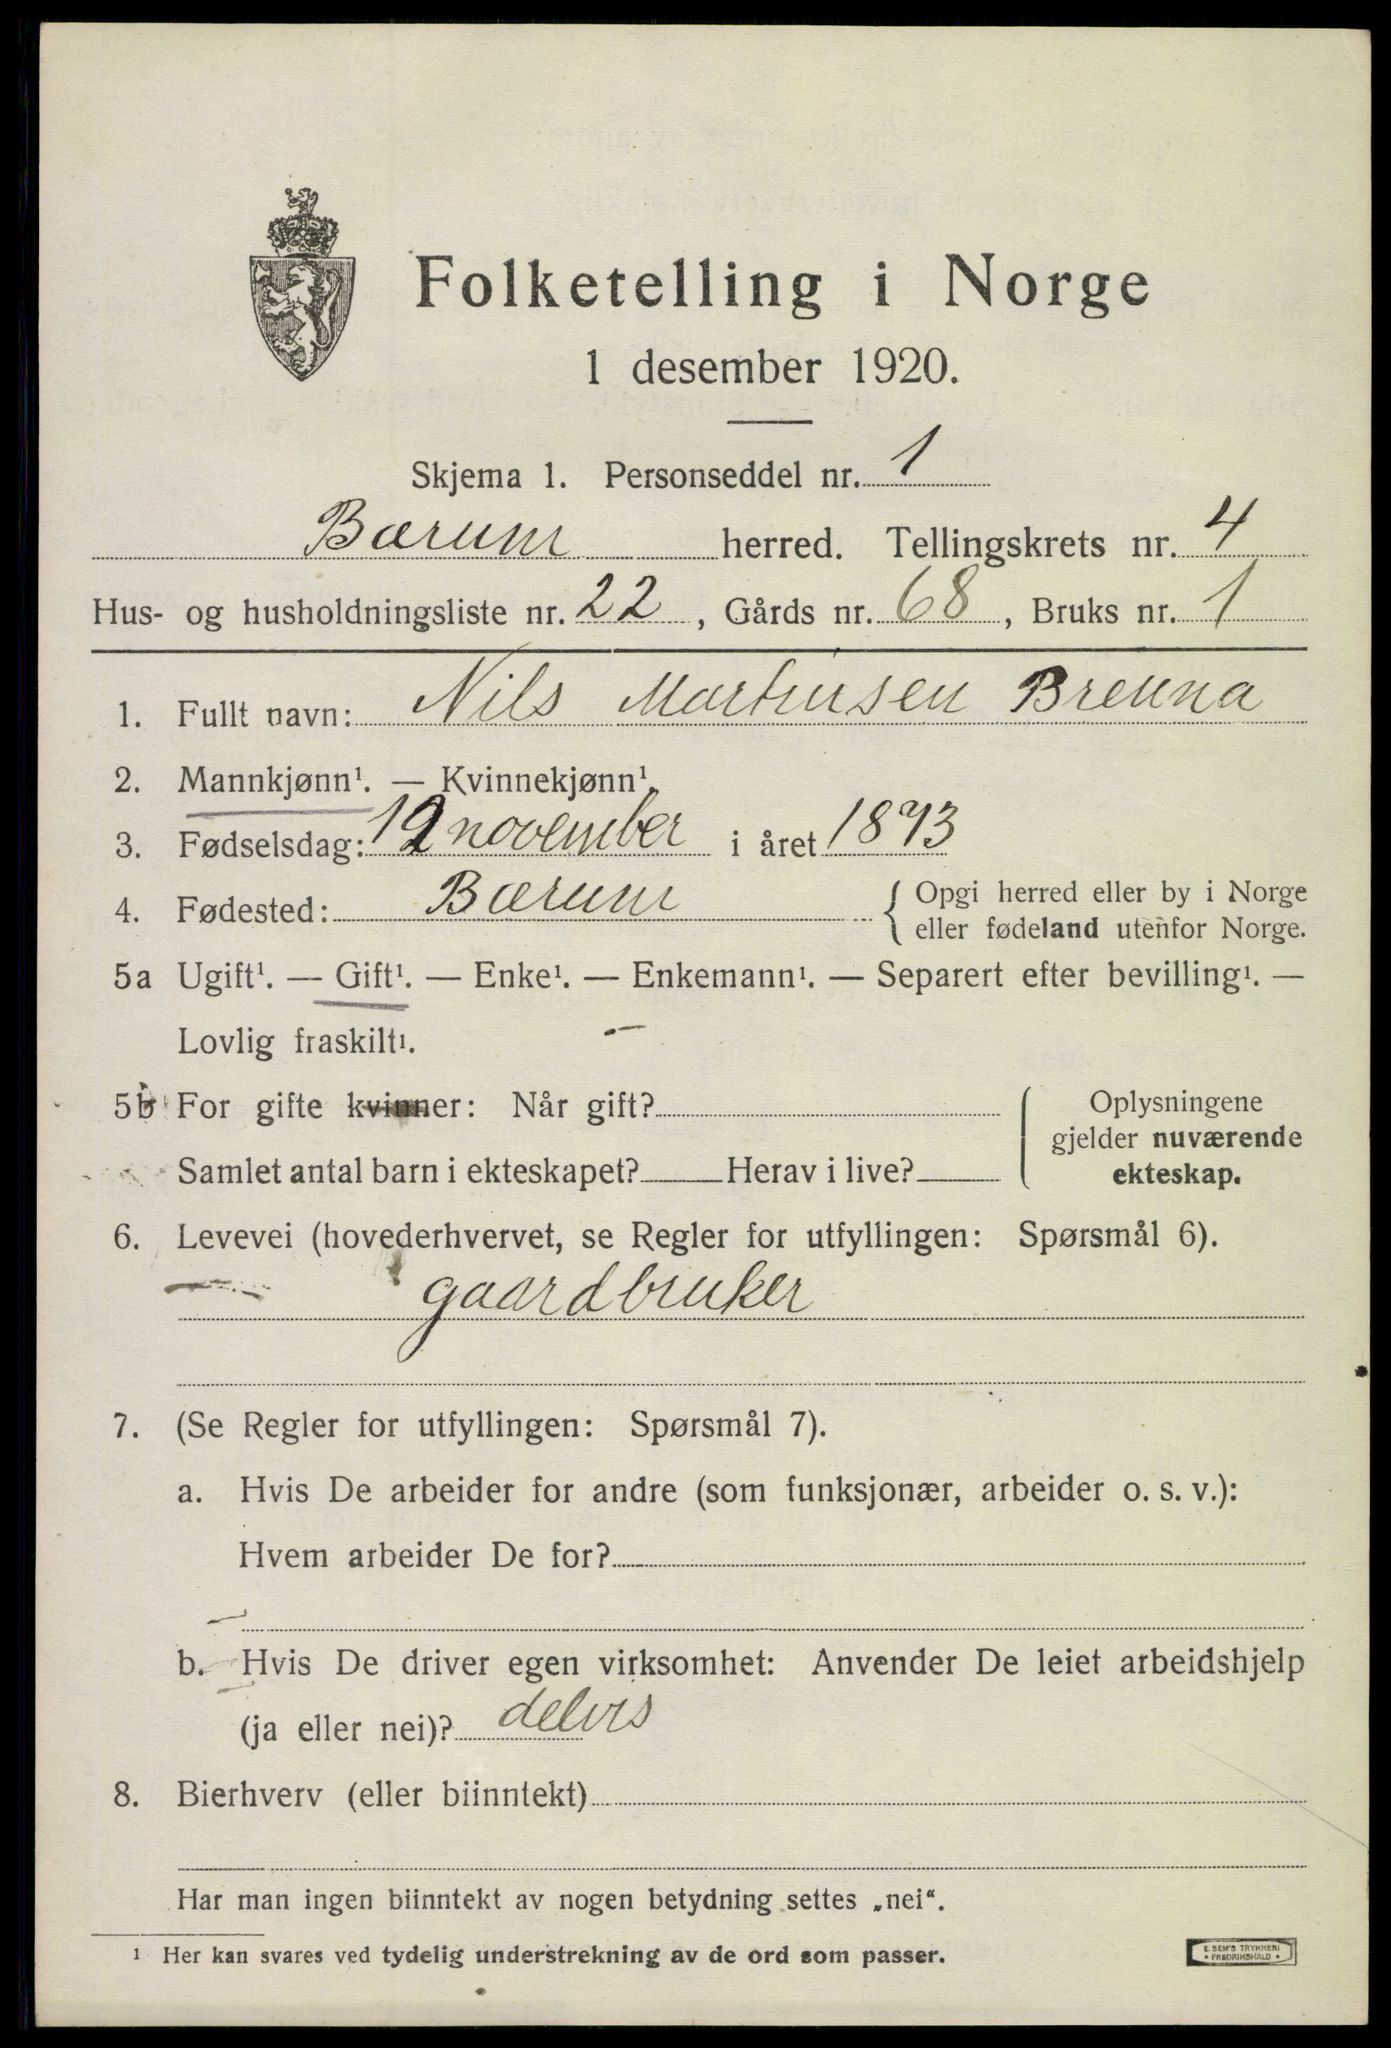 Folketelling i Norge
1 desember 1920.
Skjema 1. Personseddel nr. 1
Bærum herred. Tellingskrets nr. 4
Hus- og husholdningsliste nr. 22, Gårds nr. 68, Bruks nr. 1
1. Fullt navn: Nils Martinsen Brenna
2. Mannkjønn¹. — Kvinnekjønn¹.
3. Fødselsdag: 12 november i året 1873
4. Fødested: Bærum { Opgi herred eller by i Norge
eller fødeland utenfor Norge.
5a Ugift¹. — Gift¹. — Enke¹. — Enkemann¹. — Separert efter bevilling¹. —
Lovlig fraskilt¹.
5b For gifte kvinner: Når gift?
Samlet antal barn i ekteskapet? Herav i live?
Oplysningene
gjelder nuværende
ekteskap.
6. Levevei (hovederhvervet, se Regler for utfyllingen: Spørsmål 6).
gaardbruker
7. (Se Regler for utfyllingen: Spørsmål 7).
a. Hvis De arbeider for andre (som funksjonær, arbeider o. s. v.):
Hvem arbeider De for?
b. Hvis De driver egen virksomhet: Anvender De leiet arbeidshjelp
(ja eller nei)? delvis
8. Bierhverv (eller biinntekt)
Har man ingen biinntekt av nogen betydning settes „nei“.
¹ Her kan svares ved tydelig understrekning av de ord som passer.
E. SEM'S TRYKKERI
• FREDRIKSHALD •